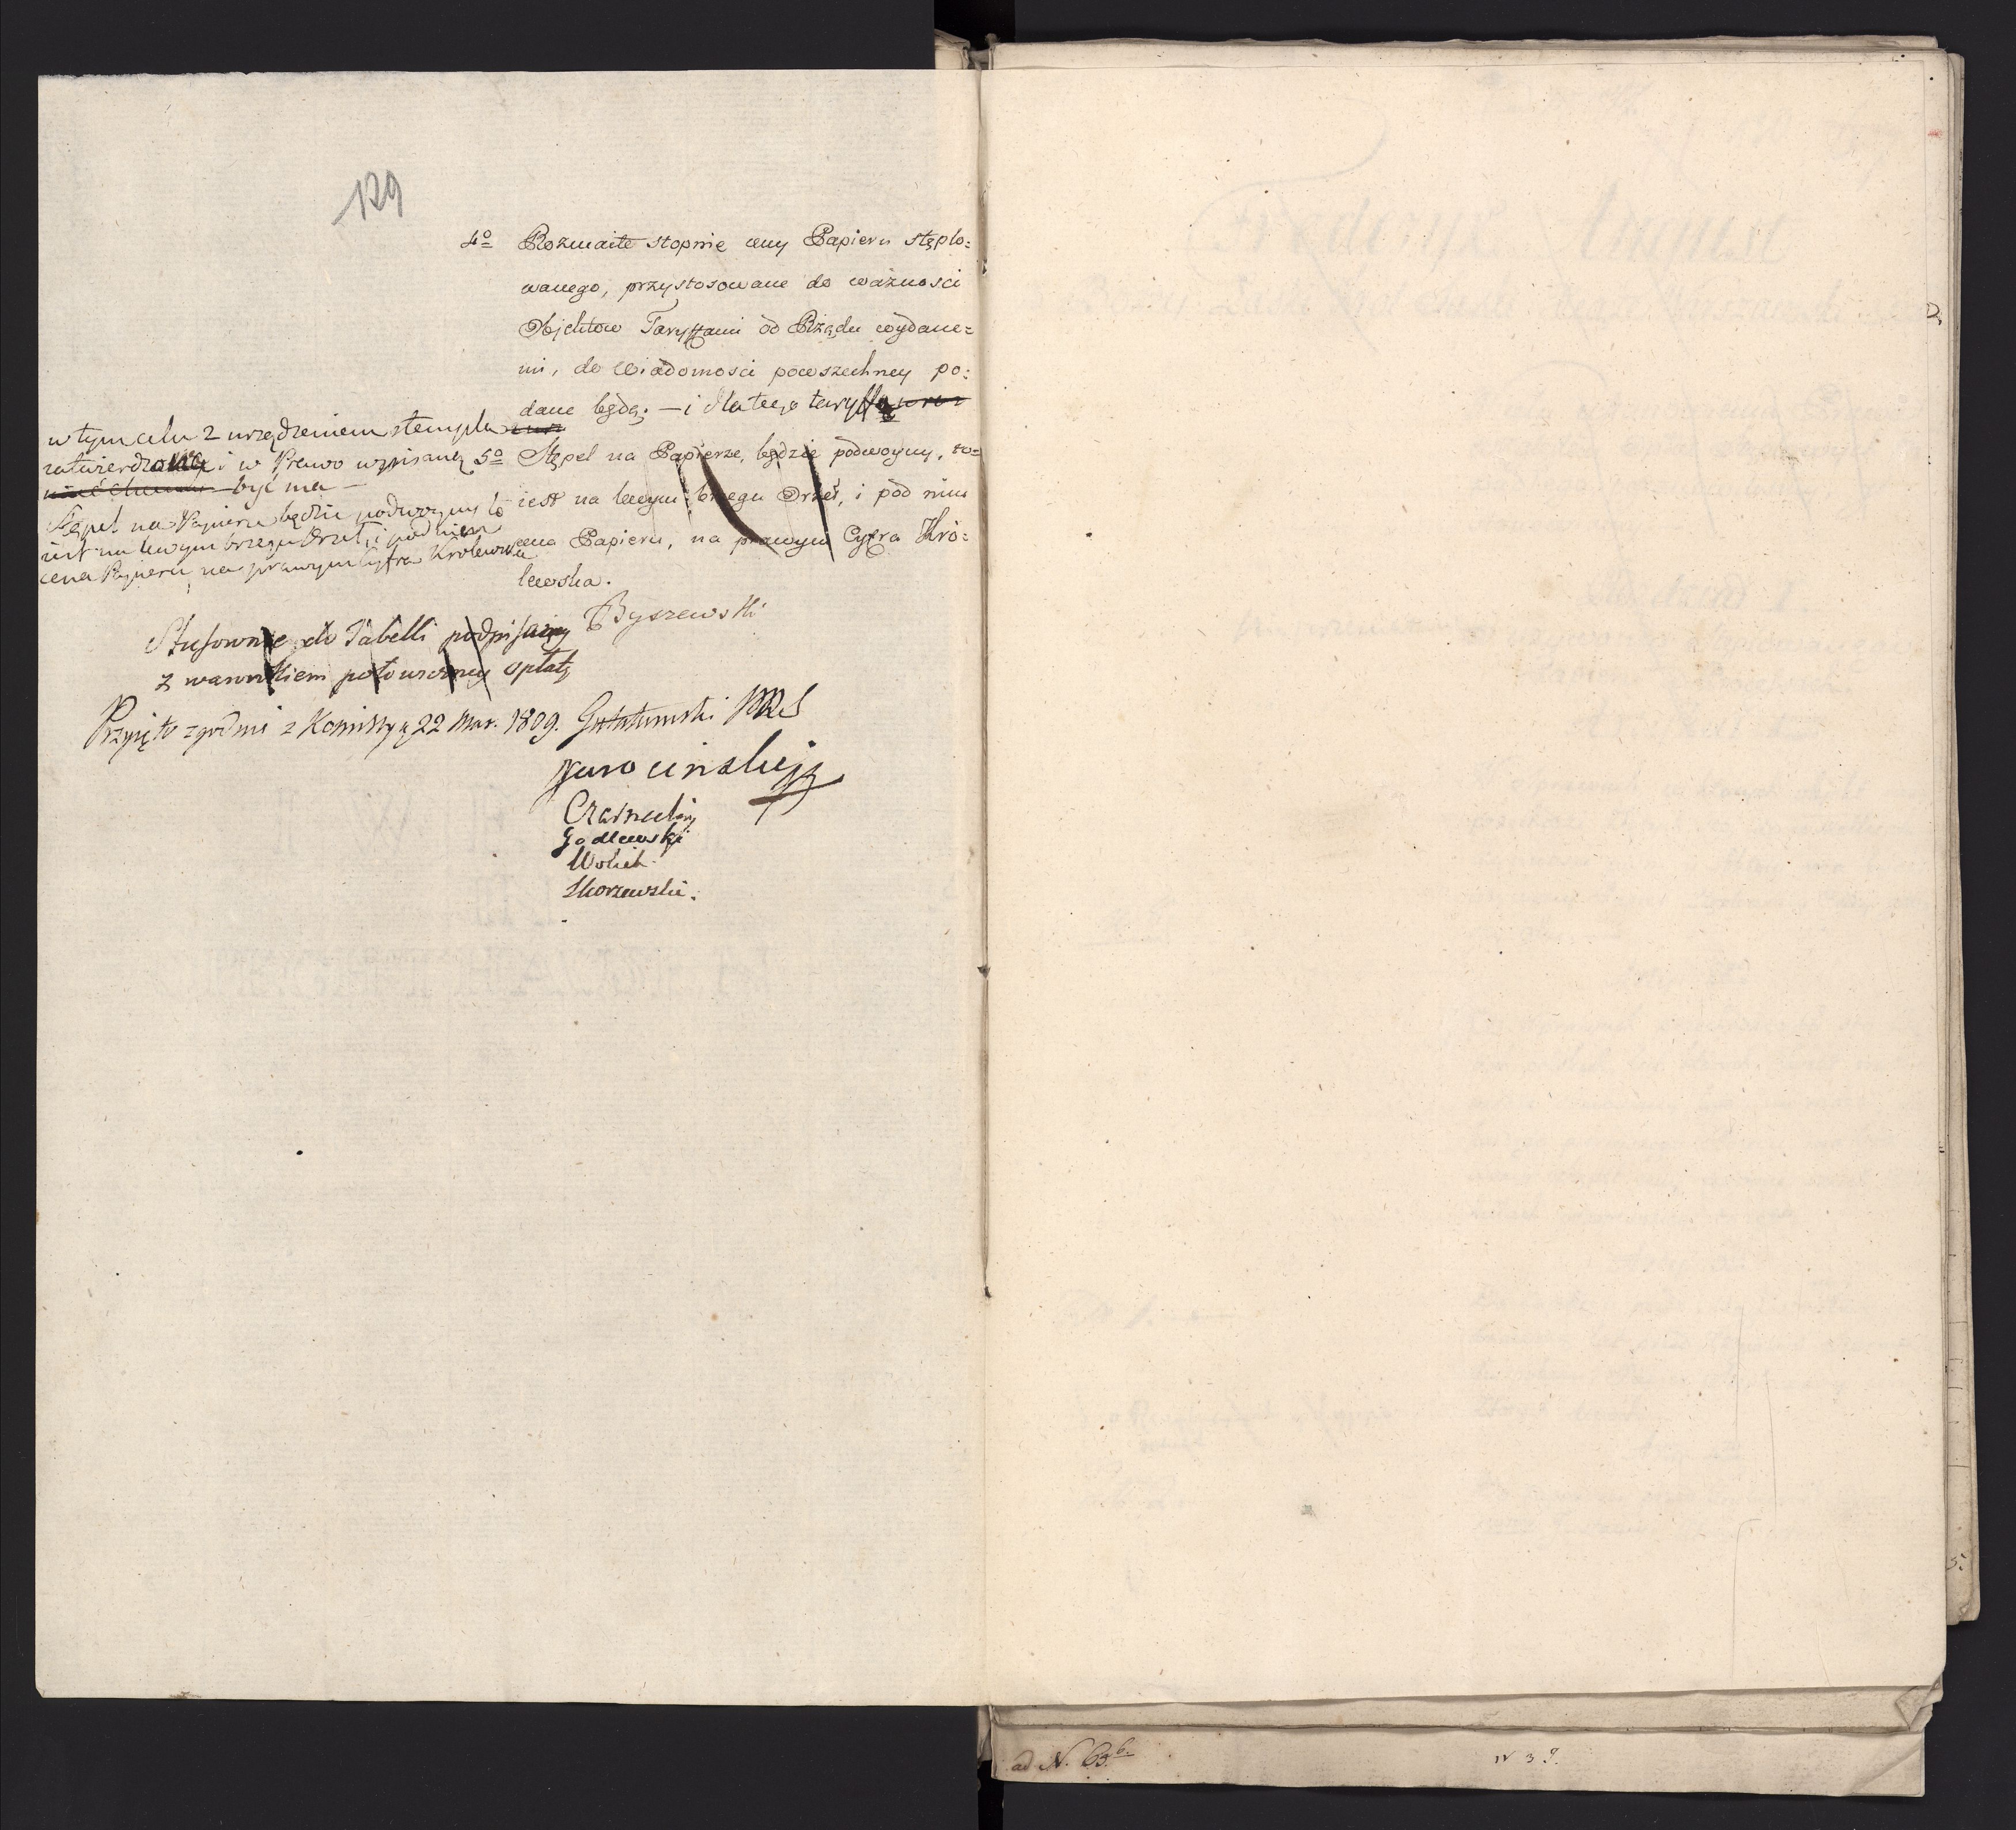 129
4o Rozmaite stopnie ceny Papieru stęplo=
wanego, przystosowane do ważności
Objektow Taryffami od Rządu wydane=
mi, do wiadomości powszechney po=
dane będą. — i dla tego taryffa wraz
w tym celu z urządzeniem stempla
zatwierdzoną i w Prawo wpisaną
być ma —
Stępel na Papierze będzie podwoyny to
iest na lewym brzegu Orzeł, i pod nim
cena Papieru na prawym Cyfra Krolewska
5o Stępel na Papierze, będzie podwoyny, to=
iest na lewym brzegu Orzeł, i pod nim
cena Papieru, na prawym Cyfra Kró=
lewska.
Byszewski
Stosownie do Tabelli podpisaney
z warunkiem potowiczney opłaty
Przyięte zgodnie z Kommissyą 22 Mar. 1809.
Jarocinski
Czarnecki
Godlewski
Wolicki
Skorzewski.
ad N. 63 b.
N 39.